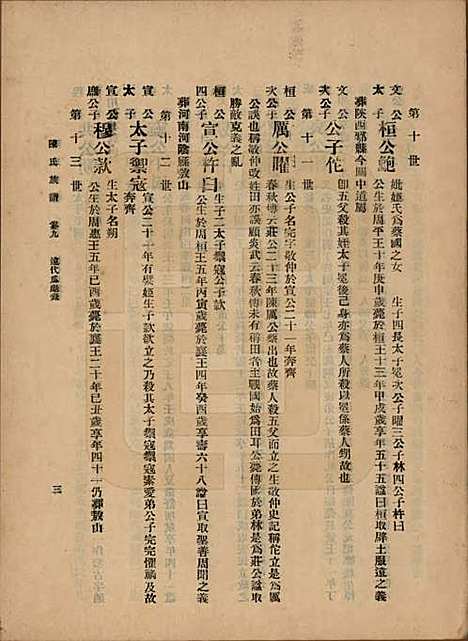 第十世
文公 桓公鮑 妣姬氏爲蔡國之女 生子四長太子冕次公子曜三公子林四公子杵臼
太子 公生於周平王十年庚申歲薨於桓王十三年甲戌歲享年五十五諡曰桓取辟土服遠之義
葬陝西 縣今關中道屬
文公 公子佗 卽五父殺其姪太子冕後己身亦爲蔡人所殺以冕係蔡人甥故也
次公子
第十一世
桓公 厲公曜 生公子名完字敬仲於宣公二十一年奔齊
次公子 春秋傳云莊公二十三年陳厲公蔡出也故蔡人殺五父而立之生敬仲史記稱佗立是爲
公誤也敬仲改姓田亦誤顧炎武云春秋傳未有稱田者至戰國始爲田耳公薨傳國於弟林是爲莊公諡取
勝敵克義之亂
桓公 宣公杵臼 生子二太子禦寇公子款
四公子 公生於周桓王五年丙寅歲薨於襄王四年癸酉歲享壽六十八諡曰宣取聖善周聞之義
葬河南河陰縣敖山
第十二世
宣公 太子禦寇 宣公二十一年有嬖姬生子款欲立之乃殺其太子禦寇禦寇素愛弟公子完完懼禍及故
太子 奔齊
宣公 穆公款 生太子名朔
庶公子 公生於周惠王五年己酉歲薨於襄王二十年己丑歲享年四十一仍葬敖山
第十三世
陳氏族譜 卷九 遠代 錄 三